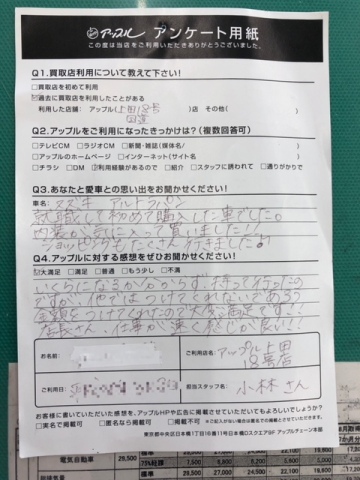 アップル アンケート用紙
この度は当店をご利用いただきありがとうございました。
Q1.買取店利用について教えて下さい!
□買取店を初めて利用
☑過去に買取店を利用したことがある
利用した店舗: アップル( 上田18号国道 )店 その他( )
Q2.アップルをご利用になったきっかけは?(複数回答可)
□テレビCM □ラジオCM □新聞・雑誌(媒体名/ )
□アップルのホームページ □インターネット(サイト名 )
□チラシ □DM ☑利用経験があるので □紹介 □スタッフに誘われて □通りがかりで
Q3.あなたと愛車との思い出をお聞かせください!
車名: スズキ アルトラパン
就職して初めて購入した車でした。
内装が気に入って買いました!!
ショッピングもたくさん行きました♪
Q4.アップルに対する感想をぜひお聞かせください!
☑大満足 □満足 □普通 □もう少し □不満
いくらになるか分からず、持って行ったの
ですが、他ではつけてくれないであろう
金額をつけてくれたので大変満足です!!
店長さん、仕事が速く感じが良い!!
お名前
ご利用店名: アップル上田18号店
ご利用日:
担当スタッフ名: 小林さん
お客様に書いていただいた感想を、アップルHPや広告に掲載させていただいてもよろしいでしょうか?
□実名で掲載可 □匿名なら掲載可 □掲載不可
東京都中央区日本橋1丁目10番11号日本橋Dスクエア8F アップルチェーン本部
電気自動車